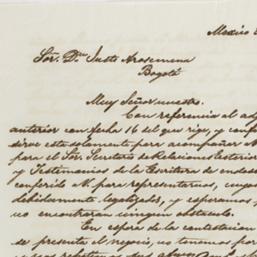 Mexico
Sor. Dn. Justo Arosemena
Bogotá
Muy Señor nuestro.
Con referencia al
anterior con fecha 16 del que rige, y
sirve esta solamente para acompañar
para el Sor. Secretario de Relaciones Exterior
y Testimonios de la Escritura de
conferido para representarnos, cuyos
debidamente legalizados, y esperamos,
no encontraran ningun obstaculo.
En espera de la contestacion
se presenta el negocio, no tenemos por